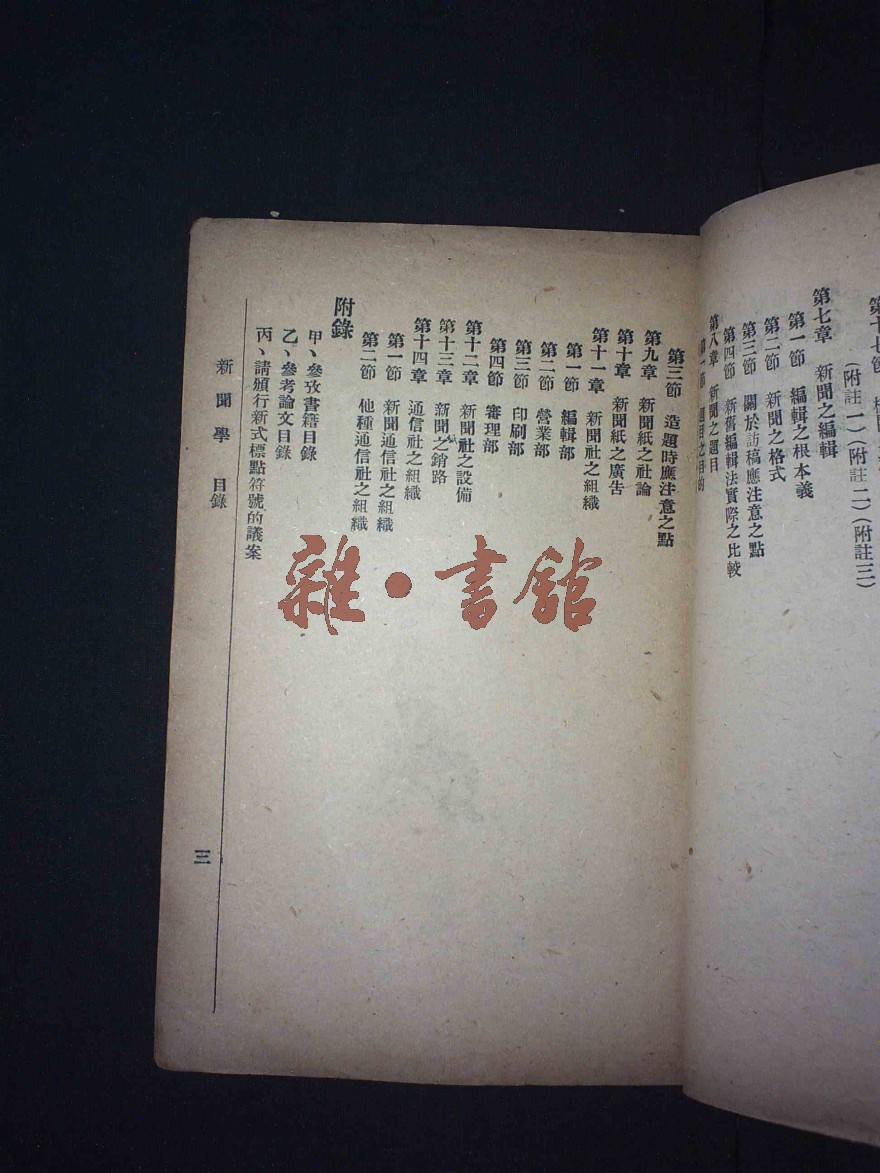 (附註一)(附註二)(附註三)
第七章　新聞之編輯
第一節　編輯之根本義
第二節　新聞之格式
第三節　關於訪稿應注意之點
第四節　新舊編輯法實際之比較
第八章　新聞之題目
第三節　造題時應注意之點
第九章　新聞紙之社論
第十章　新聞紙之廣告
第十一章　新聞社之組織
第一節　編輯部
第二節　營業部
第三節　印刷部
第四節　審理部
第十二章　新聞社之設備
第十三章　新聞紙之銷路
第十四章　通信社之組織
第一節　新聞通信社之組織
第二節　他種通信社之組織
附錄
甲、參攷書籍目錄
乙、參考論文目錄
丙、請頒行新式標點符號的議案
新聞學　目錄
三
雜·書館